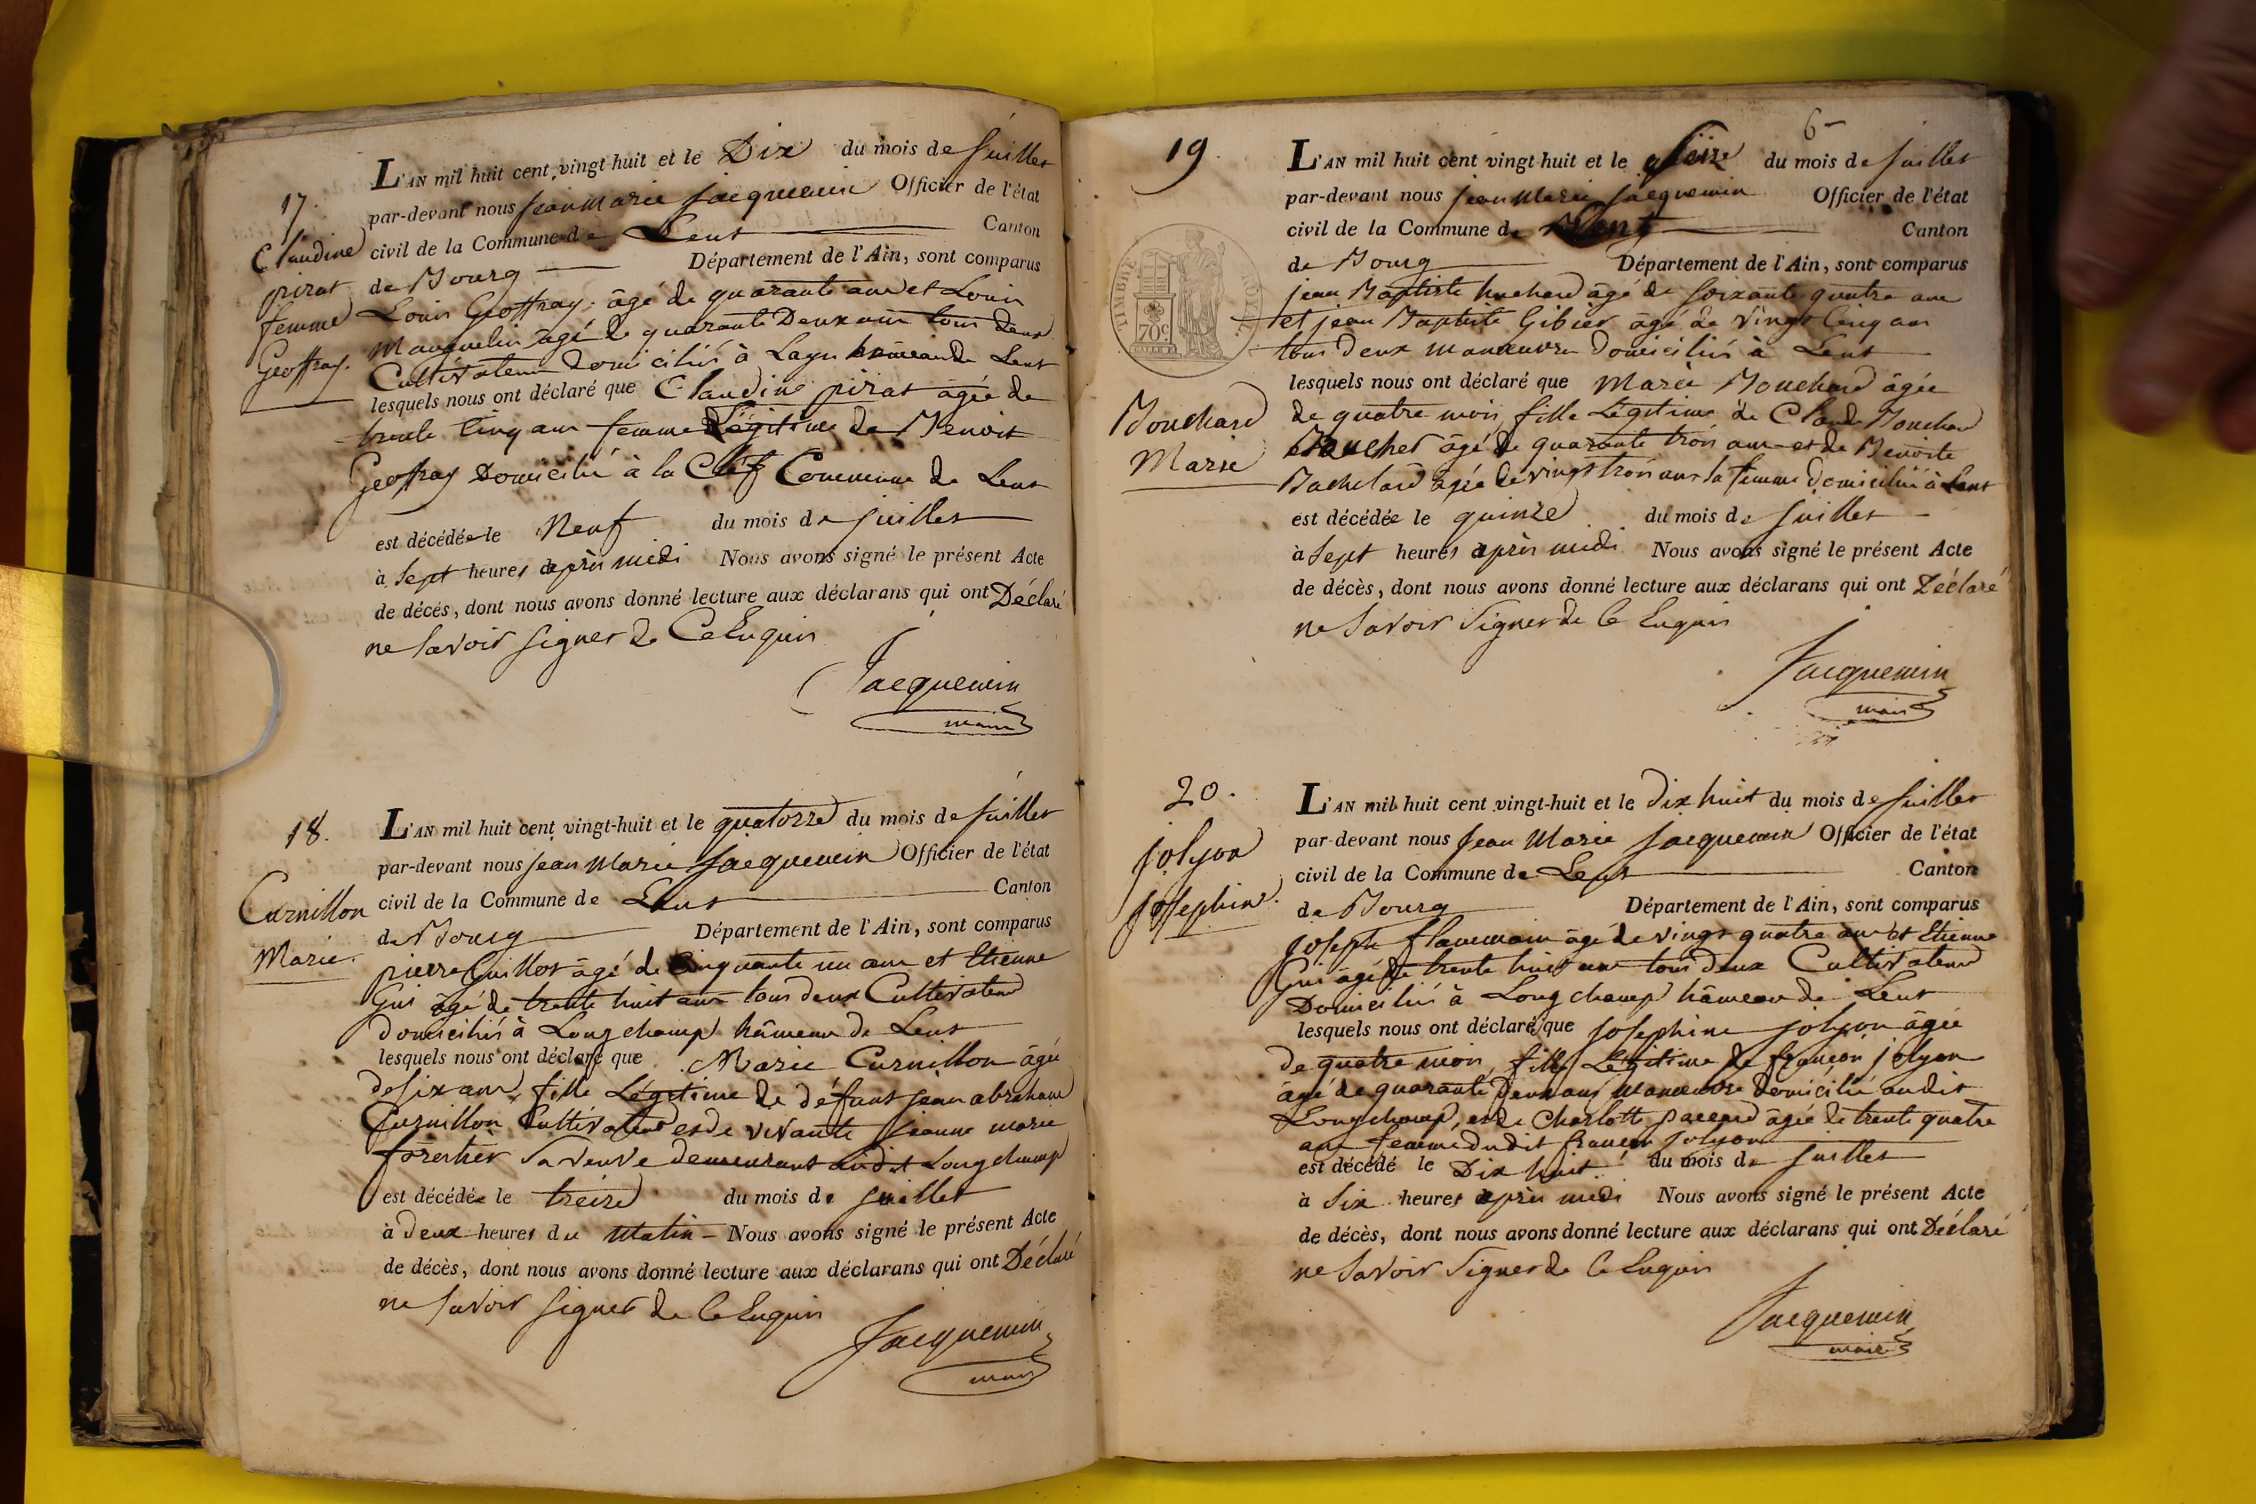 17.
Claudine
pirat
femme
Geoffray.
L'AN mil huit cent vingt-huit et le Dix du mois de juillet
par-devant nous jean marie jacquemin Officier de l'état
civil de la Commune de Lent Canton
de Bourg Département de l'Ain, sont comparus
Louis Geoffray, âgé de quarante ans et Louis
âgé de quarante Deux ans tous deux
Cultivateurs domiciliés à hâmeau de Lent
lesquels nous ont déclaré que Claudine pirat agée de
trente Cinq ans femme Légitime de Benoit
Geoffray Domicilié à la Commune de Lent
est décédée le Neuf du mois de juillet
à Sept heures après midi Nous avons signé le présent Acte
de décès, dont nous avons donné lecture aux déclarans qui ont Déclaré
ne Savoir Signer de Ce Enquis
Jacquemin
maire
18.
Curnillon
Marie.
L'AN mil huit cent vingt-huit et le quatorze du mois de juillet
par-devant nous jean Marie jacquemin Officier de l'état
civil de la Commune de Lent Canton
de Bourg Département de l'Ain, sont comparus
pierre Guillot âgé de Cinquante un ans et Etienne
Gui âgé de trente huit ans tous deux Cultivateurs
domiciliés à Longchamp hâmeau de Lent
lesquels nous ont déclaré que Marie Curnillon âgée
de six ans, fille Légitime de défunt jean abraham
Curnillon Cultivateur et de vivante jeanne marie
forestier Sa veuve demeurant audit Longchamp
est décédée le treize du mois de juillet
à deux heures du Matin - Nous avons signé le présent Acte
de décès, dont nous avons donné lecture aux déclarans qui ont Déclaré
ne Savoir Signer de Ce Enquis
Jacquemin
maire
6
19
TIMBRE ROYAL
70c
Bouchard
Marie
L'AN mil huit cent vingt-huit et le Seize du mois de juillet
par-devant nous jean Marie jacquemin Officier de l'état
civil de la Commune de Lent Canton
de Bourg Département de l'Ain, sont comparus
jean Baptiste âgé de soixante quatre ans
et jean Baptiste Gibier âgé de vingt Cinq ans
tous deux manoeuvres domiciliés à Lent
lesquels nous ont déclaré que Marie Bouchard âgée
de quatre mois, fille Légitime de Claude Bouchard
âgé de quarante trois ans et de Benoite
Bachelard âgée de vingt trois ans sa femme domiciliés à Lent
est décédée le quinze du mois de juillet
à Sept heures après midi Nous avons signé le présent Acte
de décès, dont nous avons donné lecture aux déclarans qui ont Déclaré
ne Savoir Signer de Ce Enquis
Jacquemin
maire
20.
jolyon
josephine.
L'AN mil huit cent vingt-huit et le dix huit du mois de juillet
par-devant nous jean Marie jacquemin Officier de l'état
civil de la Commune de Lent Canton
de Bourg Département de l'Ain, sont comparus
joseph âgé de vingt quatre ans et Etienne
Gui âgé de trente huit ans tous deux Cultivateurs
Domiciliés à Longchamp hâmeau de Lent
lesquels nous ont déclaré que josephine jolyon âgée
de quatre mois, fille Légitime de françois jolyon
âgé de quarante Deux ans, manoeuvre Domicilié audit
Longchamp, et de Charlotte paccard âgée de trente quatre
ans femme dudit françois jolyon
est décédé le Dix huit du mois de juillet
à Six heures après midi Nous avons signé le présent Acte
de décès, dont nous avons donné lecture aux déclarans qui ont Déclaré
ne Savoir Signer de Ce Enquis
Jacquemin
maire